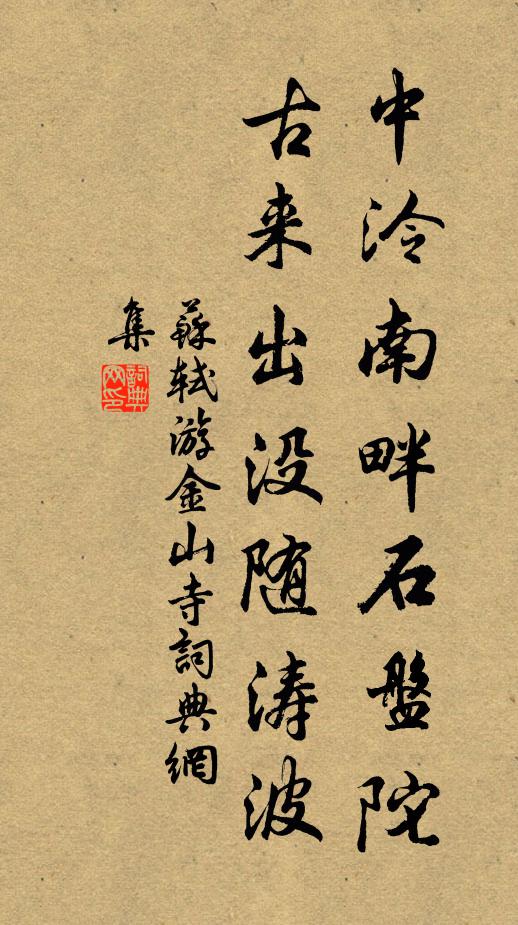 中泠南畔石盤陀
古来出没随涛波
蘇轼游金山寺詞典網
集
詞典
网印